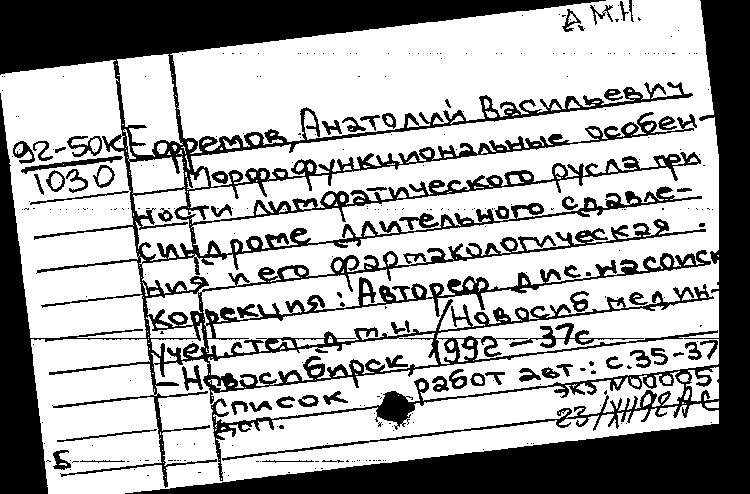 Д М.Н.
92-50К
1030
Ефремов, Анатолий Васильевич
Морфофункциональные особен-
ности лимфатического русла при
синдроме длительного сдавле-
ния и его фармакологическая
коррекция: Автореф. дис. на соиск
учен. степ. д. м. н. / Новосиб. мед ин-
-Новосибирск, 1992 - 37с.
Список работ авт.: с. 35-37
Дсп. экз. N00005.
23/XII92
Б